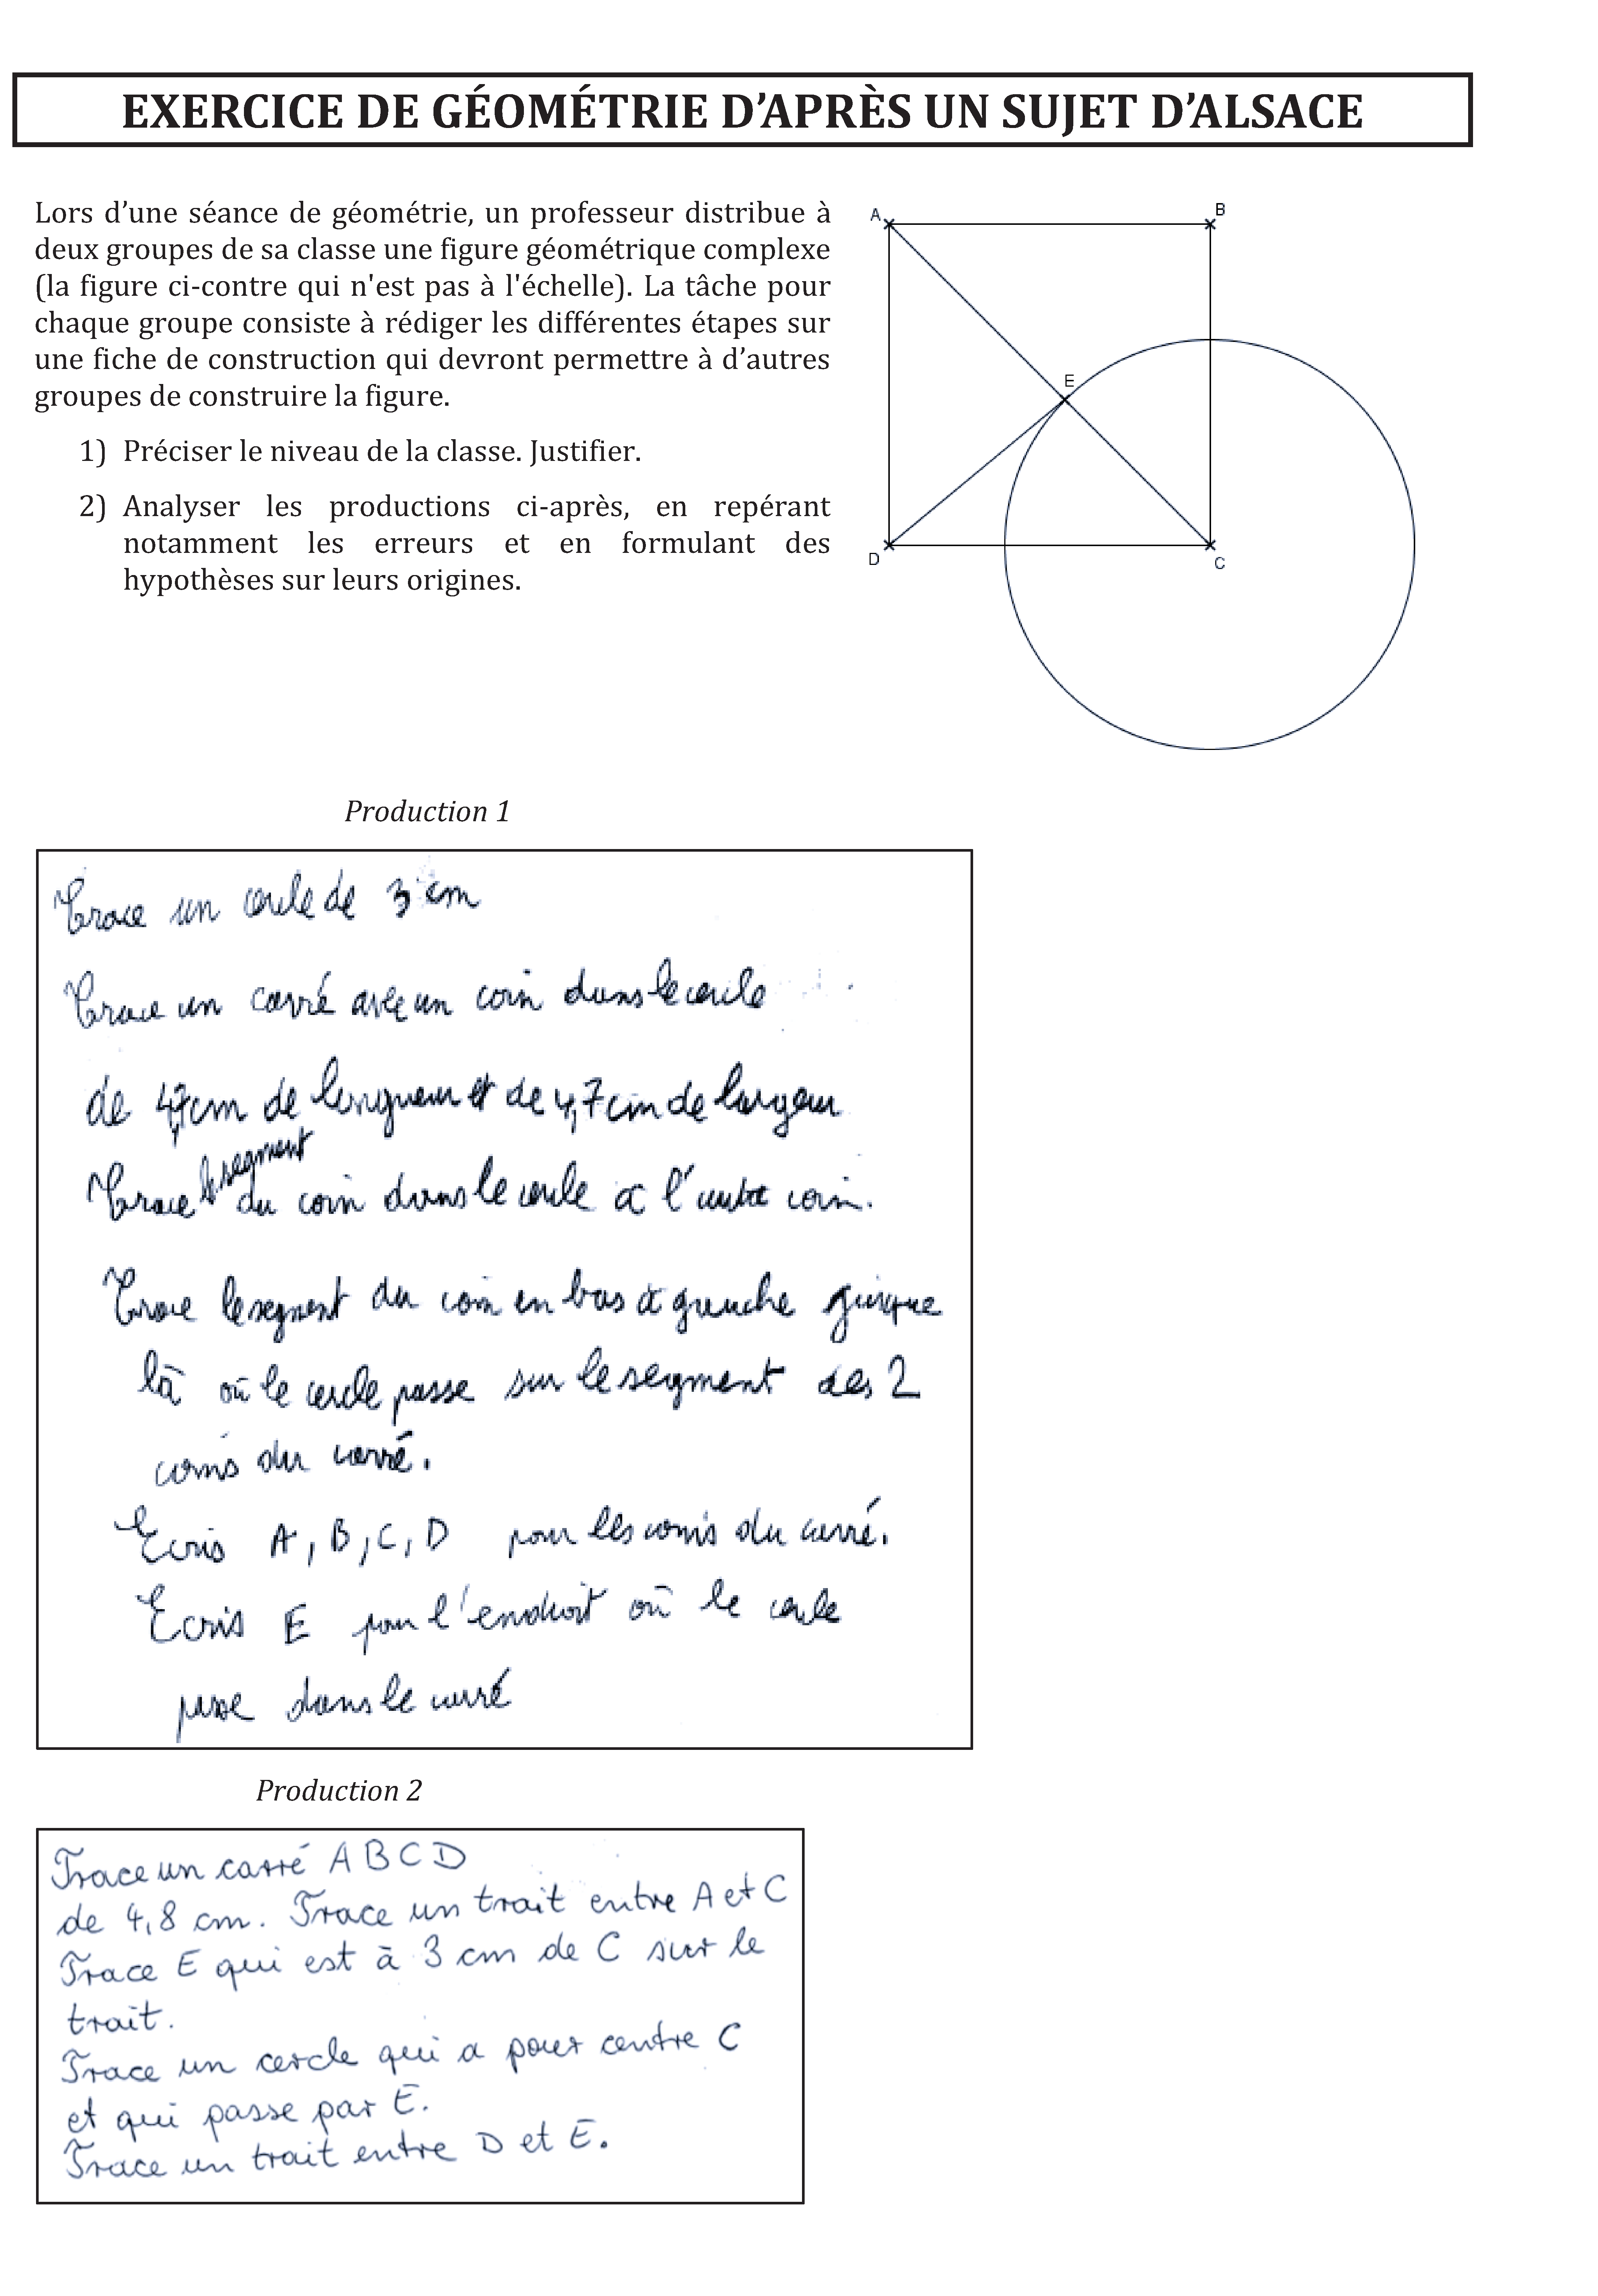 EXERCICE DE GÉOMÉTRIE D’APRÈS UN SUJET D’ALSACE
Lors d’une séance de géométrie, un professeur distribue à
deux groupes de sa classe une figure géométrique complexe
(la figure ci-contre qui n'est pas à l'échelle). La tâche pour
chaque groupe consiste à rédiger les différentes étapes sur
une fiche de construction qui devront permettre à d’autres
groupes de construire la figure.
1) Préciser le niveau de la classe. Justifier.
2) Analyser les productions ci-après, en repérant
notamment les erreurs et en formulant des
hypothèses sur leurs origines.
A
B
E
D
C
Production 1
Trace un cercle de 3 cm
Trace un carré avec un coin dans le cercle
de 4,7cm de longueur et de 4,7cm de largeur
Trace le segment du coin dans le cercle a l'autre coin.
Trace le segment du coin en bas à gauche jusque
là où le cercle passe sur le segment des 2
coins du carré.
Ecris A, B, C, D pour les coins du carré.
Ecris E pour l'endroit où le cercle
passe dans le carré
Production 2
Trace un carré A B C D
de 4,8 cm. Trace un trait entre A et C
Trace E qui est à 3 cm de C sur le
trait.
Trace un cercle qui a pour centre C
et qui passe par E.
Trace un trait entre D et E.